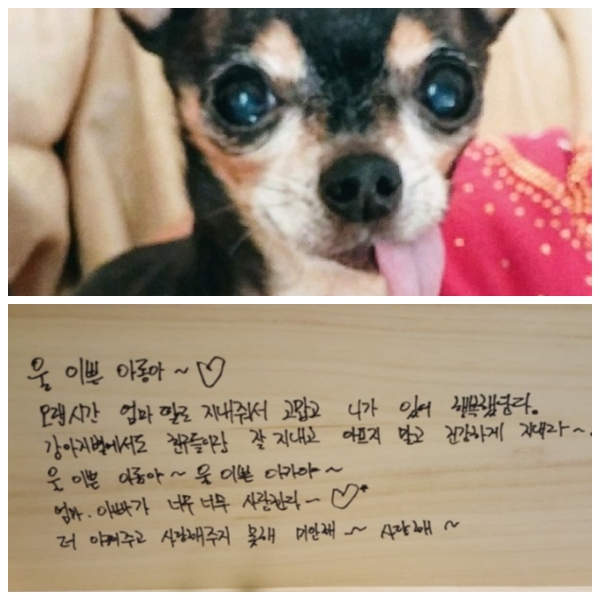 울 이쁜 아롱아 ~ ♡
오랜시간 엄마 딸로 지내줘서 고맙고 니가 있어 행복했단다.
강아지별에서도 친구들이랑 잘 지내고 아프지 말고 건강하게 지내라~.
울 이쁜 아롱아 ~ 울 이쁜 아가야 ~
엄마. 아빠가 너무 너무 사랑한다 ~ ♡
더 아껴주고 사랑해주지 못해 미안해 ~ 사랑해 ~